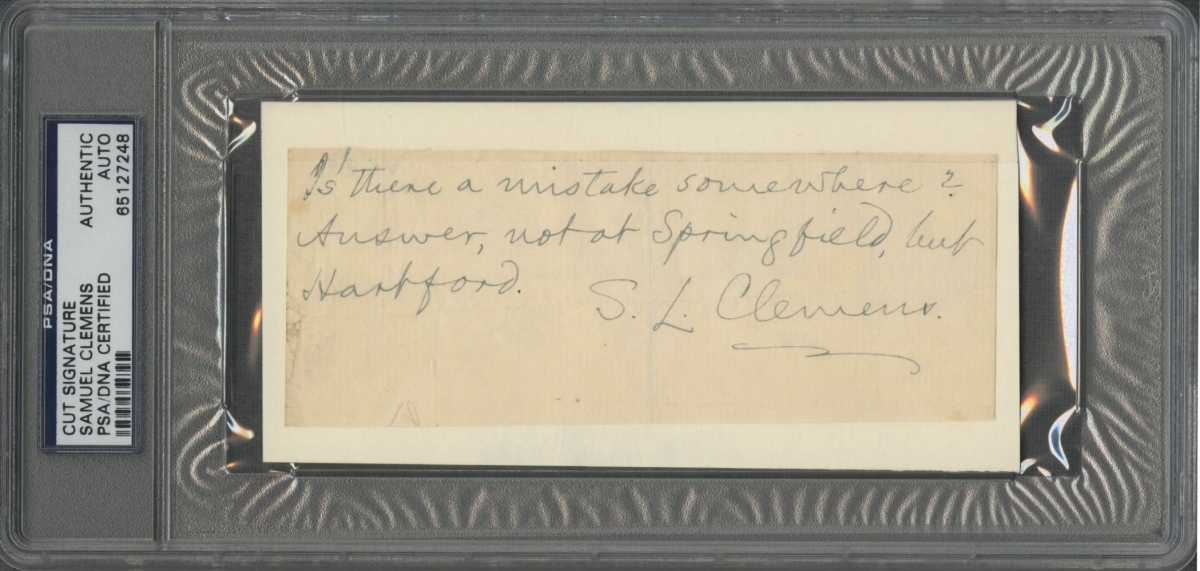 PSA/DNA
CUT SIGNATURE
SAMUEL CLEMENS
PSA/DNA CERTIFIED
AUTHENTIC
AUTO
65127248
Is there a mistake somewhere?
Answer, not at Springfield, but
Hartford.
S. L. Clemens.